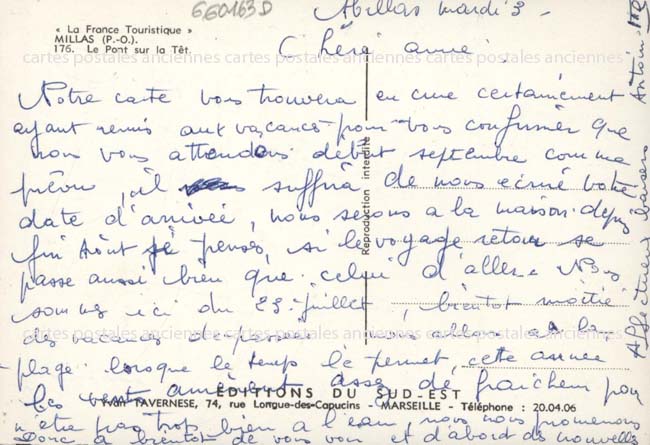 660163D
« La France Touristique »
MILLAS (P.-O.).
176. Le Pont sur la Têt.
Millas mardi 3 -
Chère amie
cartes postales anciennes cartes postales anciennes cartes postales anciennes
Notre carte vous trouvera en certainement
ayant remis aux vacances pour vous confirmer que
nous vous attendons début septembre comme
prévu, il suffira de nous écrire votre
date d'arrivée, nous serons a la maison depuis
fin Août je pense, si le voyage retour se
passe aussi bien que celui d'aller. Nous
sommes ici du 23 juillet, bientôt moitié
des vacances de passées nous allons a la
cartes postales anciennes cartes postales anciennes cartes postales anciennes
plage lorsque le temps le permet, cette année
les vents amènent assez de fraicheur pour
n'être pas trop bien a l'eau, nous nous promenons
Donc a bientôt de vous voir et d'abord de nouvelles
Affectueux baisers
Reproduction interdite
ÉDITIONS DU SUD-EST
Yvan TAVERNESE, 74, rue Longue-des-Capucins - MARSEILLE - Téléphone : 20.04.06